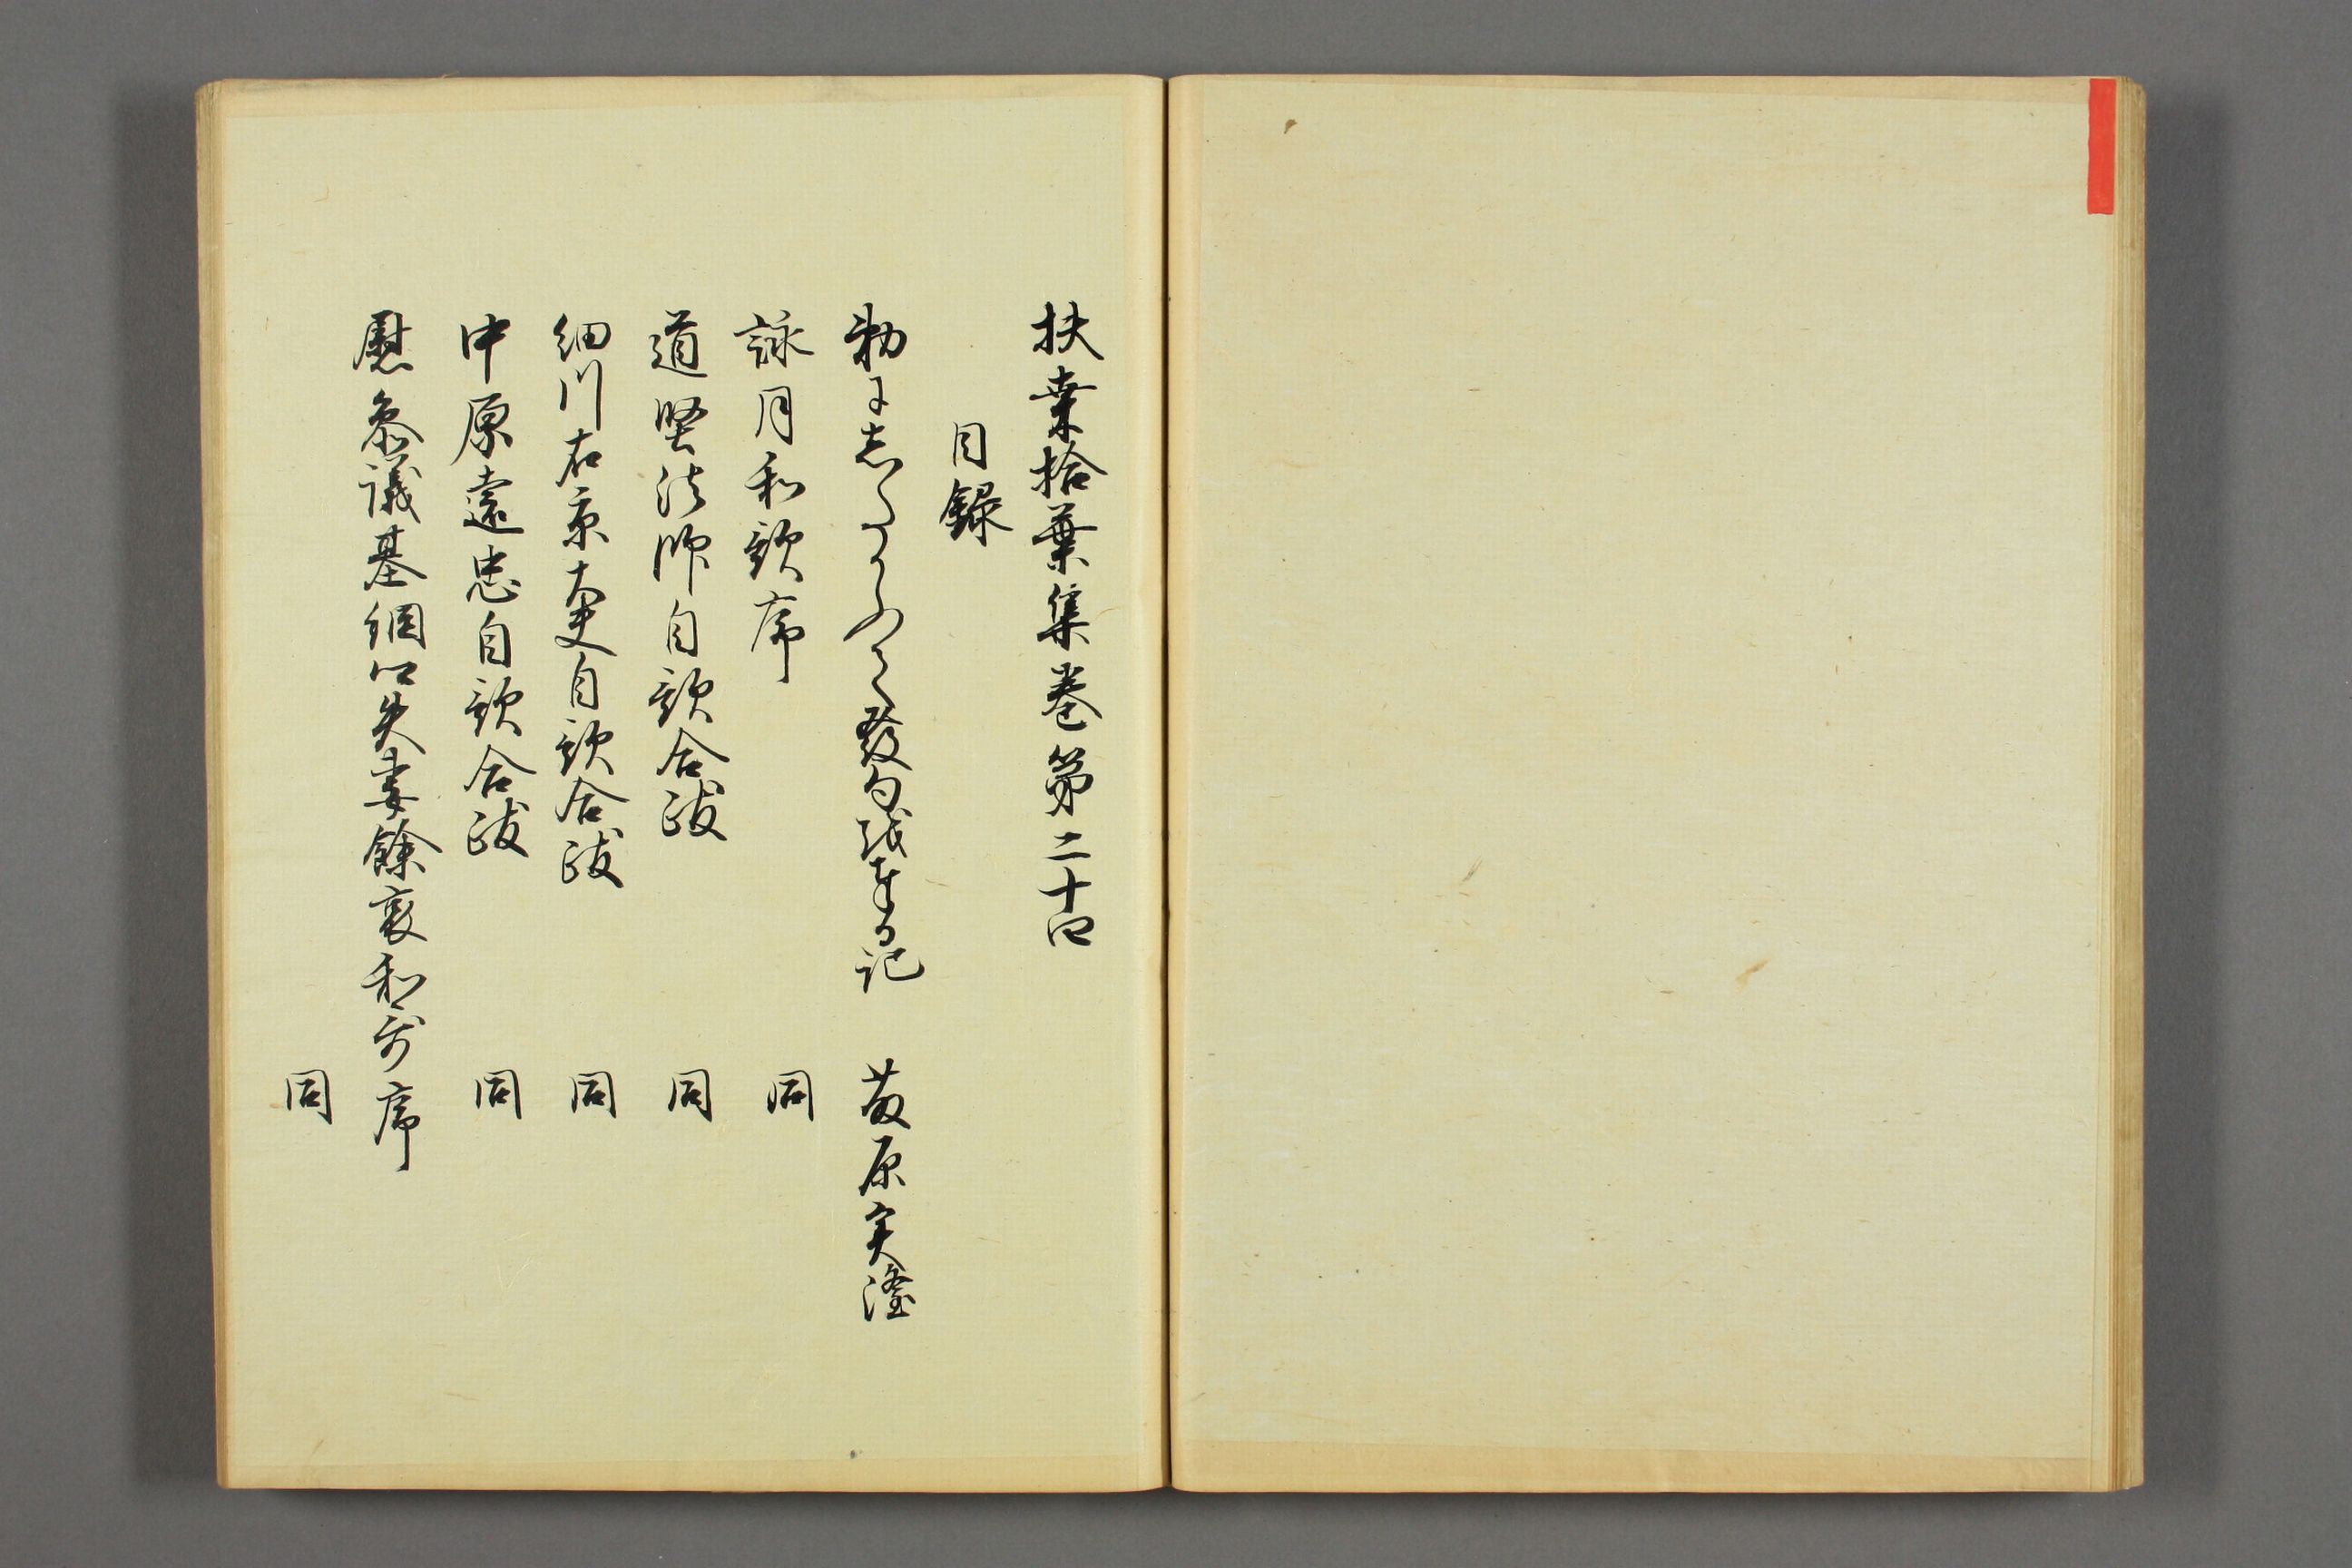 扶桒拾葉集巻第二十四
目録
勅にしたかひて發句を奉る記　藤原実隆
詠月和歌序　同
道堅法師自歌合跋　同
細川右京大夫自歌合跋　同
中原遠忠自歌合跋　同
慰参議基綱卿失妻餘哀和哥序
同